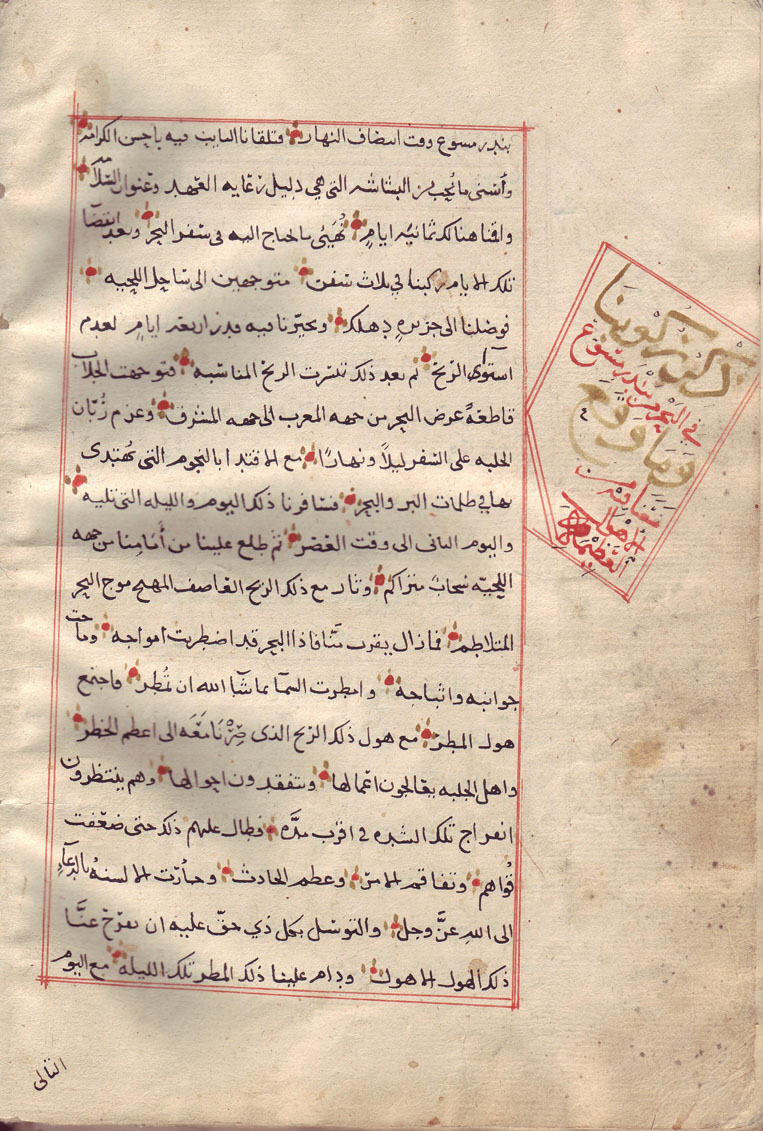 بندر مسوع وقت انتصاف النهار فتلقانا النايب فيه باحسن الكرامه
واسنى ما يجب من البشاشه التي هي دليل رعايه العهد وعنوان السلامه
واقمنا هنالك ثمانيه ايام نُهَيِّئ ما يحتاج اليه في سفر البحر وبعد انقضا
تلك الايام ركبنا في ثلاث سفن متوجهين الى ساحل اللحيه
فوصلنا الى جزيرهِ دهلك وتحيّرنا فيه قدر اربعه ايامٍ لعدم
استوآ الريح ثم بعد ذلك تيسرت الريح المناسبه فتوجهت الجلاب
قاطعهً عرض البحر من جهه المغرب الى جهه المشرق وعزم رُبّان
الجلبه على السفر ليلاً ونهارًا مع الاقتدا بالنجوم التي يُهتدى
بها في ظلمات البر والبحر فسافرنا ذلك اليوم والليله التي تليه
واليوم الثاني الى وقت العصر ثم طلع علينا من أَمامِنا من جهه
اللحيّه سحابٌ متراكم وثار مع ذلك الريح العاصف المهيج موج البحر
المتلاطم فمازال يقرب منّا فاذا البحر قد اضطربت امواجه وماجت
جوانبه واثباجه وامطرت السمآ بما شآ الله ان تُمطر فاجتمع
هول المطر مع هول ذلك الريح الذي صِرْنا مَعَه الى اعظم الخطر
واهل الجلبه يعالجون اعمالها ويتفقدون احوالها وهم ينتظرون
انفراج تلك الشده في اقرب مدّه فطال عليهم ذلك حتى ضعفت
قُواهم وتفاقم الامر وعظم الحادث وجأرت الالسنهُ بالدعآءِ
الى اللهِ عزَّ وجل والتوسّل بكل ذي حقّ عليه ان يفرّج عنّا
ذلك الهول الاهول ودام علينا ذلك المطر تلك الليله مع اليوم
التالى
ذكر ركوبنا
في البحر من بندر مسوع
وما وقع
معنا فيه من
الاهوال
العظيمه